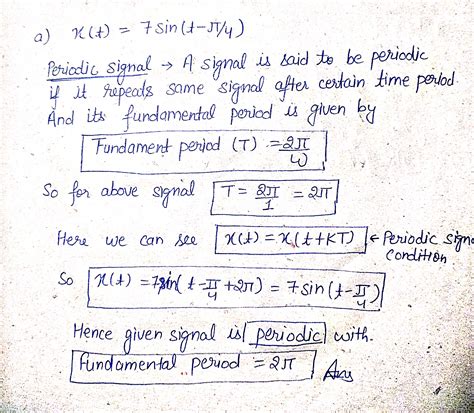 a) x(t) = 7 sin (t-π/4)
Periodic signal → A signal is said to be periodic
if it repeats same signal after certain time period.
And its fundamental period is given by
Fundament period (T) = 2π/ω
So for above signal T = 2π/1 = 2π
Here we can see x(t) = x(t+KT) ← Periodic signa
condition
So x(t) = 7sin(t-π/4+2π) = 7sin(t-π/4)
Hence given signal is periodic with.
fundamental period = 2π Ans